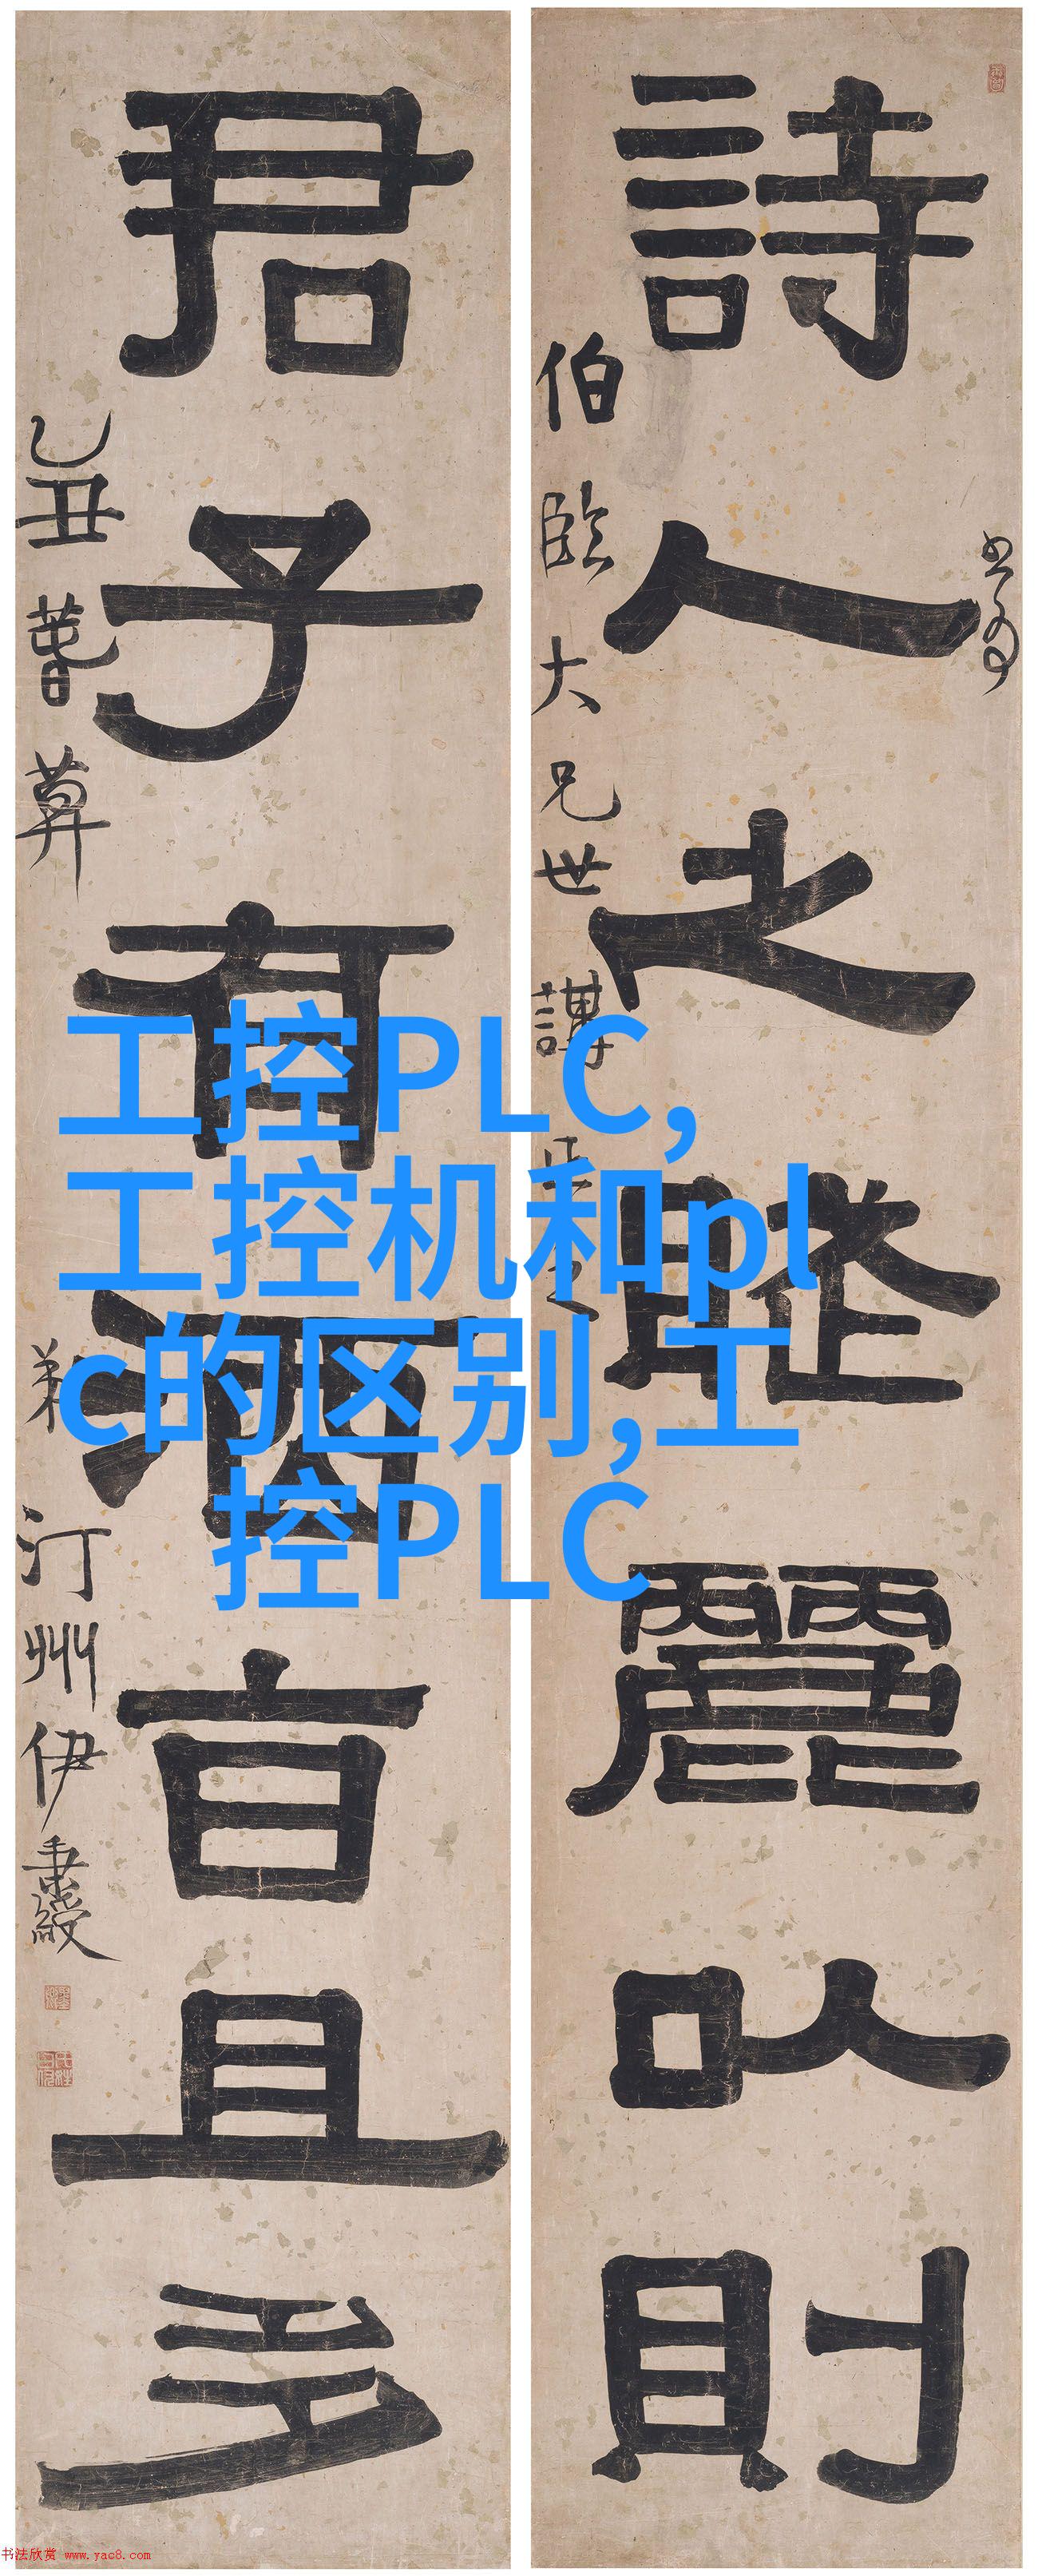 詩人之賦麗以則
書為
伯臨大兄世講
正之
君子有酒旨且多
乙丑
弟汀州伊秉綬
工控PLC,
工控机和pl
c的区别,工
控PLC
书法欣赏 www.yac8.com